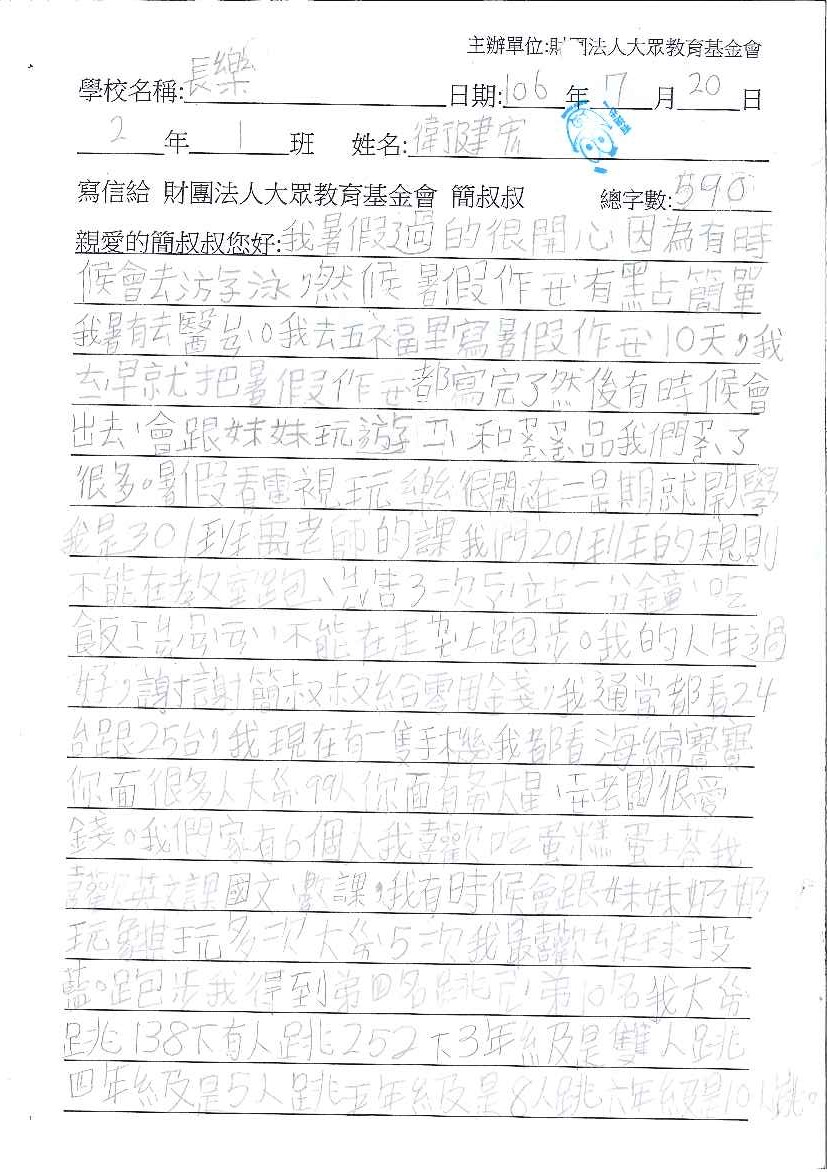 主辦單位:財團法人大眾教育基金會
學校名稱:長樂 日期:106年7月20日
2年1班 姓名:健宏
寫信給 財團法人大眾教育基金會 簡叔叔 總字數:590
親愛的簡叔叔您好:我暑假過的很開心因為有時
候會去游泳,然候暑假作ㄝ有點占簡單
我暑有去醫台。我去五福里寫暑假作ㄝ10天,我
早就把暑假作ㄝ都寫完了然後有時候會
出去會跟妹妹玩遊和品我們了
很多暑假看電視玩樂很開在二是期就開學
我是301班萬老師的課我們201班的規則
不能在教室跑、告3次站一分鐘、吃
飯不能在走上跑步。我的人生過
好,謝謝簡叔叔給零用錢,我通常都看24
台跟25台,我現在有一隻手機我都看海綿寶寶
你面很多人大約99人你面有多大星老闆很愛
錢。我們家有6個人我喜歡吃蛋糕蛋塔我
喜歡英文課國文數課,我有時候會跟妹妹奶奶
玩玩多次大約5次我最喜歡球投
籃。跑步我得到第四名跳第10名我大約
跳138下有人跳252下3年級是雙人跳
四年級是5人跳五年級是8人跳六年級是10人跳。